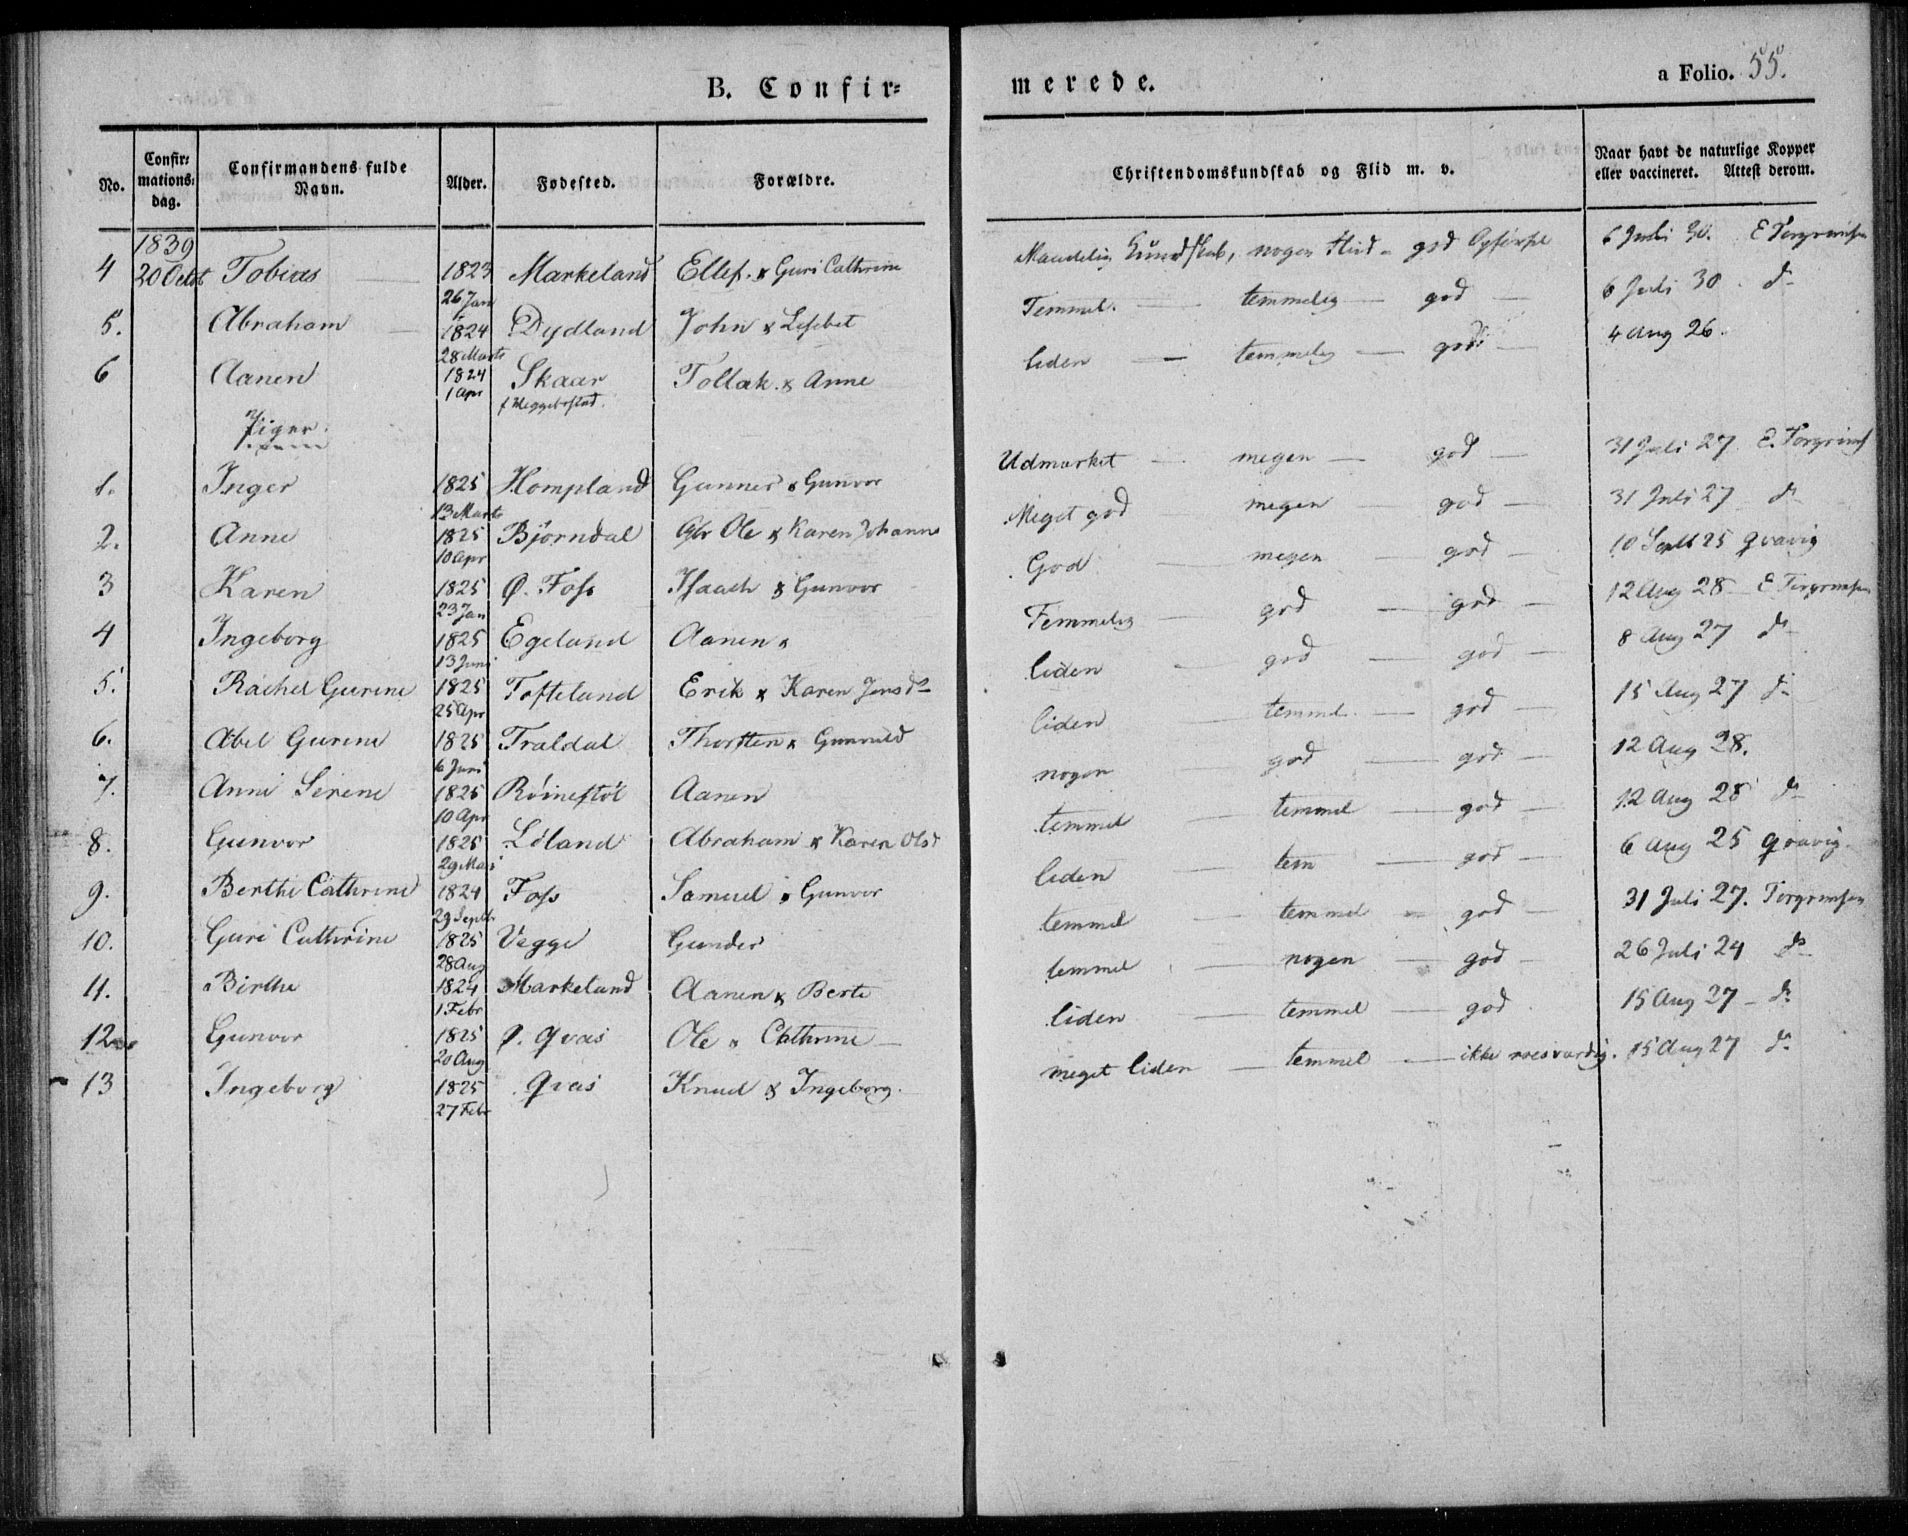 B. Confir=
merede.
a Folio. 55.
No. Confir=mations=dag. Confirmandens fulde Navn. Alder. Fødested. Forældre. Christendomskundskab og Flid m. v. Naar havt de naturlige Kopper eller vaccineret. Attest derom.
1839
4 20 Octbr Tobias 1823 26 Jan Markeland Ellef & Guri Cathrine Maadelig Kundskab, nogen Flid - god Opførsel 6 Juli 30. E Torgrimsen
5. Abraham 1824 28 Marts Dydland John & Lisebet Temmel. — temmelig — god — 6 Juli 30. do
6 Aanen 1824 1 Apr Skaar f Heggebostad. Tollak & Anne liden — temmelig — god — 4 Aug 26.
Piger.
1. Inger 1825 13 Marts Hompland Gunner & Gunvor Udmærket — megen — god — 31 Juli 27 E. Torgrims
2. Anne 1825 10 Apr Bjørndal Ole & Karen Johanne Meget god megen — god — 31 Juli 27 do
3 Karen 1825 23 Jan Ø. Foss Isaach & Gunvor God — megen — god — 10 Septb 25 Qvavig
4 Ingeborg 1825 13 Juni Egeland Aanen & Temmelig — god — god — 12 Aug 28 E Torgrimsen
5. Rachel Gurine 1825 25 Apr Tofteland Erik & Karen Jensd liden — god — god — 8 Aug 27 do
6. Abel Gurine 1825 6 Juni Traldal Thorsten & Gunvald liden — temmel. — god — 15 Aug 27 do
7. Anne Serine 1825 10 Apr Røinestøl Aanen nogen — god — god — 12 Aug 28.
8. Gunvor 1825 29 Mai Løland Abraham & Karen Olsd temmel temmel — god — 12 Aug 28 do
9. Berthe Cathrine 1824 29 Septbr Foss Samuel & Gunvor liden — tem — god — 6 Aug 25 Qvavig.
10. Guri Cathrine 1825 28 Aug Vegge Gunder temmel — temmel — god — 31 Juli 27. Torgrimsen
11. Birthe 1824 1 Febr Markeland Aanen & Berte temmel — nogen — god — 26 Juli 24 do
12 Gunvor 1825 20 Aug Ø. Qvas Ole & Cathrine — liden — temmel — god 15 Aug 27 - do
13 Ingeborg 1825 27 Febr Qvas Knud & Ingeborg. meget liden — temmel — ikke roesværdig. 15 Aug 27 do